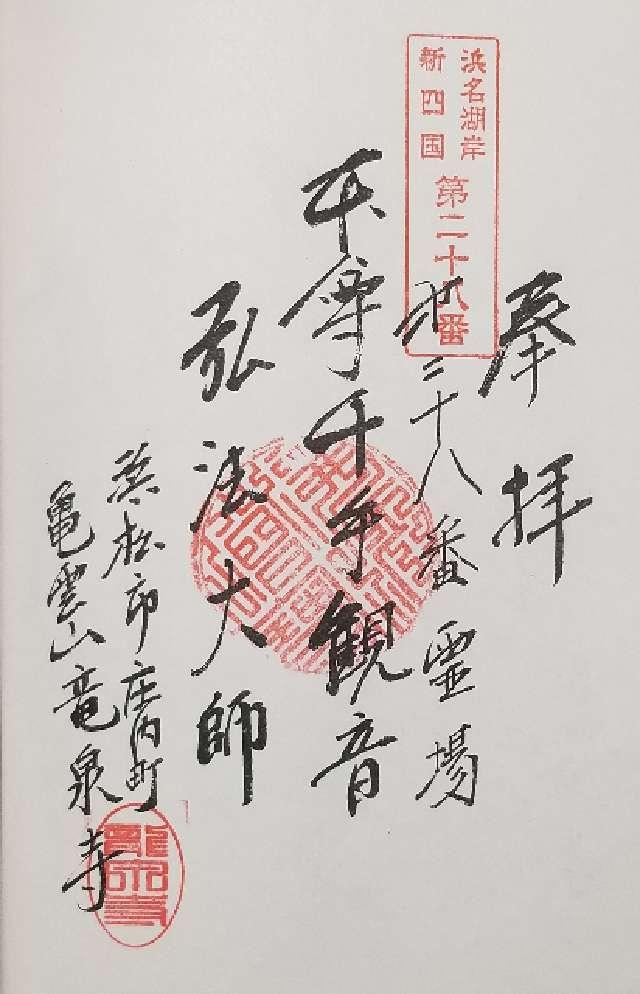 奉拝
浜名湖岸
新四国
第二十八番
第二十八番霊場
本尊千手観音
弘法大師
浜松市庄内町
亀雲山竜泉寺
龍泉寺